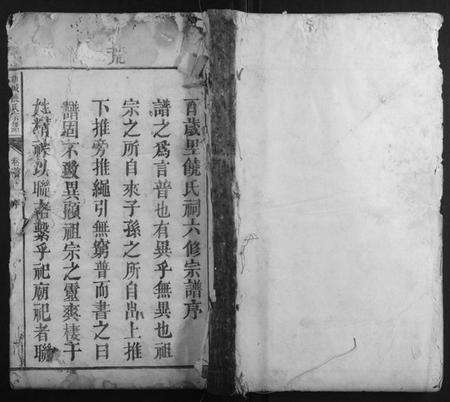 百歲里饒氏祠六修宗譜序
譜之爲言普也有異乎無異也祖
宗之所自來子孫之所自出上推
下推旁推繩引無窮普而書之曰
譜固不敢異顧祖宗之靈爽棲子
姓精神以聯絡繫乎祀廟祀者聯